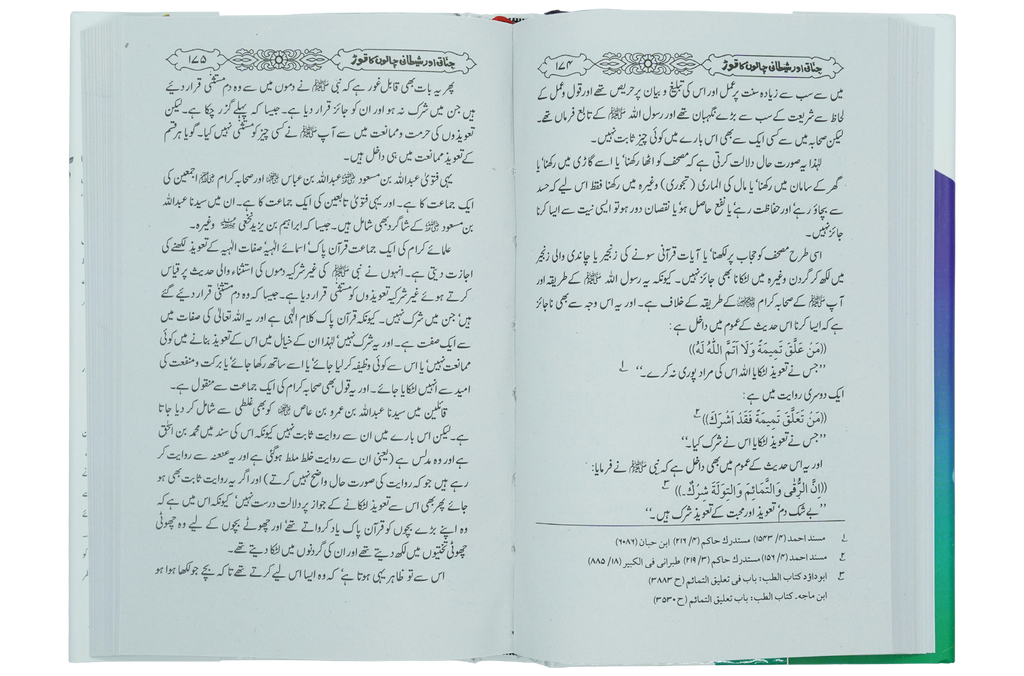 جناتی اور شیطانی چالوں کا توڑ
۱۷۴
میں سے سب سے زیادہ سنت پر عمل اور اس کی تبلیغ و بیان پر حریص تھے اور قول و عمل کے
لحاظ سے شریعت کے سب سے بڑے نگہبان تھے اور رسول اللہ ﷺ کے تابع فرمان تھے۔
لیکن صحابہ میں سے کسی ایک سے بھی اس بارے میں کوئی چیز ثابت نہیں۔
لہٰذا یہ صورت حال دلالت کرتی ہے کہ مصحف کو اٹھا رکھنا‘ یا اسے گاڑی میں رکھنا‘ یا
گھر کے سامان میں رکھنا‘ یا مال کی الماری (تجوری) وغیرہ میں رکھنا فقط اس لیے کہ حسد
سے بچاؤ رہے‘ اور حفاظت رہے‘ یا نفع حاصل ہو‘ یا نقصان دور ہو تو ایسی نیت سے ایسا کرنا
جائز نہیں۔
اسی طرح مصحف کو حجاب پر لکھنا‘ یا آیات قرآنی سونے کی زنجیر یا چاندی والی زنجیر
میں لکھ کر گردن وغیرہ میں لٹکانا بھی جائز نہیں۔ کیونکہ یہ رسول اللہ ﷺ کے طریقہ اور
آپ ﷺ کے صحابہ کرام کے طریقہ کے خلاف ہے۔ اور یہ اس وجہ سے بھی ناجائز
ہے کہ ایسا کرنا اس حدیث کے عموم میں داخل ہے:
((مَنْ عَلَّقَ تَمِيمَةً وَلَا اَتَمَّ اللّٰهُ لَهُ))
’’جس نے تعویذ لٹکایا اللہ اس کی مراد پوری نہ کرے۔‘‘ ۱
ایک دوسری روایت میں ہے:
((مَنْ تَعَلَّقَ تَمِيمَةً فَقَدْ اَشْرَكَ)) ۲
’’جس نے تعویذ لٹکایا اس نے شرک کیا۔‘‘
اور یہ اس حدیث کے عموم میں بھی داخل ہے کہ نبی ﷺ نے فرمایا:
((اِنَّ الرُّقٰى وَالتَّمَائِمَ وَالتِّوَلَةَ شِرْكٌ۔)) ۳
’’بے شک دم‘ تعویذ اور محبت کے تعویذ شرک ہیں۔‘‘
۱ مسند احمد (۴/ ۱۵۴۳) مستدرك حاكم (۴/ ۲۱۶) ابن حبان (۶۰۸۶)
۲ مسند احمد (۴/ ۱۵۶) مستدرك حاكم (۳/ ۲۱۹) طبرانی فی الكبير (۱۸/ ۸۸۵)
۳ ابو داؤد كتاب الطب: باب فی تعليق التمائم (ح ۳۸۸۳)
ابن ماجه۔ كتاب الطب: باب تعليق التمائم (ح ۳۵۳۰)
جناتی اور شیطانی چالوں کا توڑ
۱۷۵
پھر یہ بات بھی قابل غور ہے کہ نبی ﷺ نے دموں میں سے وہ دم مستثنیٰ قرار دیئے
ہیں جن میں شرک نہ ہو اور ان کو جائز قرار دیا ہے۔ جیسا کہ پہلے گزر چکا ہے۔ لیکن
تعویذوں کی حرمت و ممانعت میں سے آپ ﷺ نے کسی چیز کو مستثنیٰ نہیں کیا۔ گویا ہر قسم
کے تعویذ ممانعت میں ہی داخل ہیں۔
یہی فتویٰ عبداللہ بن مسعود عبداللہ بن عباس اور صحابہ کرام اجمعین کی
ایک جماعت کا ہے۔ اور یہی فتویٰ تابعین کی ایک جماعت کا ہے۔ ان میں سیدنا عبداللہ
بن مسعود کے شاگرد بھی شامل ہیں۔ جیسا کہ ابراہیم بن یزید نخعی وغیرہ۔
علمائے کرام کی ایک جماعت قرآن پاک‘ اسمائے الٰہیہ‘ صفات الٰہیہ کے تعویذ لکھنے کی
اجازت دیتی ہے۔ انہوں نے نبی ﷺ کی غیر شرکیہ دموں کی استثناء والی حدیث پر قیاس
کرتے ہوئے غیر شرکیہ تعویذوں کو مستثنیٰ قرار دیا ہے۔ جیسا کہ وہ دم مستثنیٰ قرار دیئے گئے
ہیں‘ جن میں شرک نہیں۔ کیونکہ قرآن پاک کلام الٰہی ہے اور یہ اللہ تعالیٰ کی صفات میں
سے ایک صفت ہے۔ اور یہ شرک نہیں‘ لہٰذا ان کے خیال میں اس کے تعویذ بنانے میں کوئی
ممانعت نہیں‘ یا اس سے کوئی وظیفہ کر لیا جائے‘ یا اسے ساتھ رکھا جائے‘ یا برکت و منفعت کی
امید سے انہیں لٹکایا جائے۔ اور یہ قول بھی صحابہ کرام کی ایک جماعت سے منقول ہے۔
قائلین میں سیدنا عبداللہ بن عمرو بن عاص کو بھی غلطی سے شامل کر دیا جاتا
ہے۔ لیکن اس بارے میں ان سے روایت ثابت نہیں کیونکہ اس کی سند میں محمد بن اسحٰق
ہے اور وہ مدلس ہے (یعنی ان سے روایت خلط ملط ہو گئی ہے اور یہ عنعنہ سے روایت کر
رہے ہیں جو کہ روایت کی صورت حال واضح نہیں کرتے) اور اگر یہ روایت ثابت بھی ہو
جائے پھر بھی اس سے تعویذ لٹکانے کے جواز پر دلالت درست نہیں‘ کیونکہ اس میں ہے کہ
وہ اپنے بڑے بچوں کو قرآن پاک یاد کرواتے تھے‘ اور چھوٹے بچوں کے لیے وہ چھوٹی
چھوٹی تختیوں میں لکھ دیتے تھے اور ان کی گردنوں میں لٹکا دیتے تھے۔
اس سے تو ظاہر یہی ہوتا ہے‘ کہ وہ ایسا اس لیے کرتے تھے تاکہ بچے جو لکھا ہوا ہو